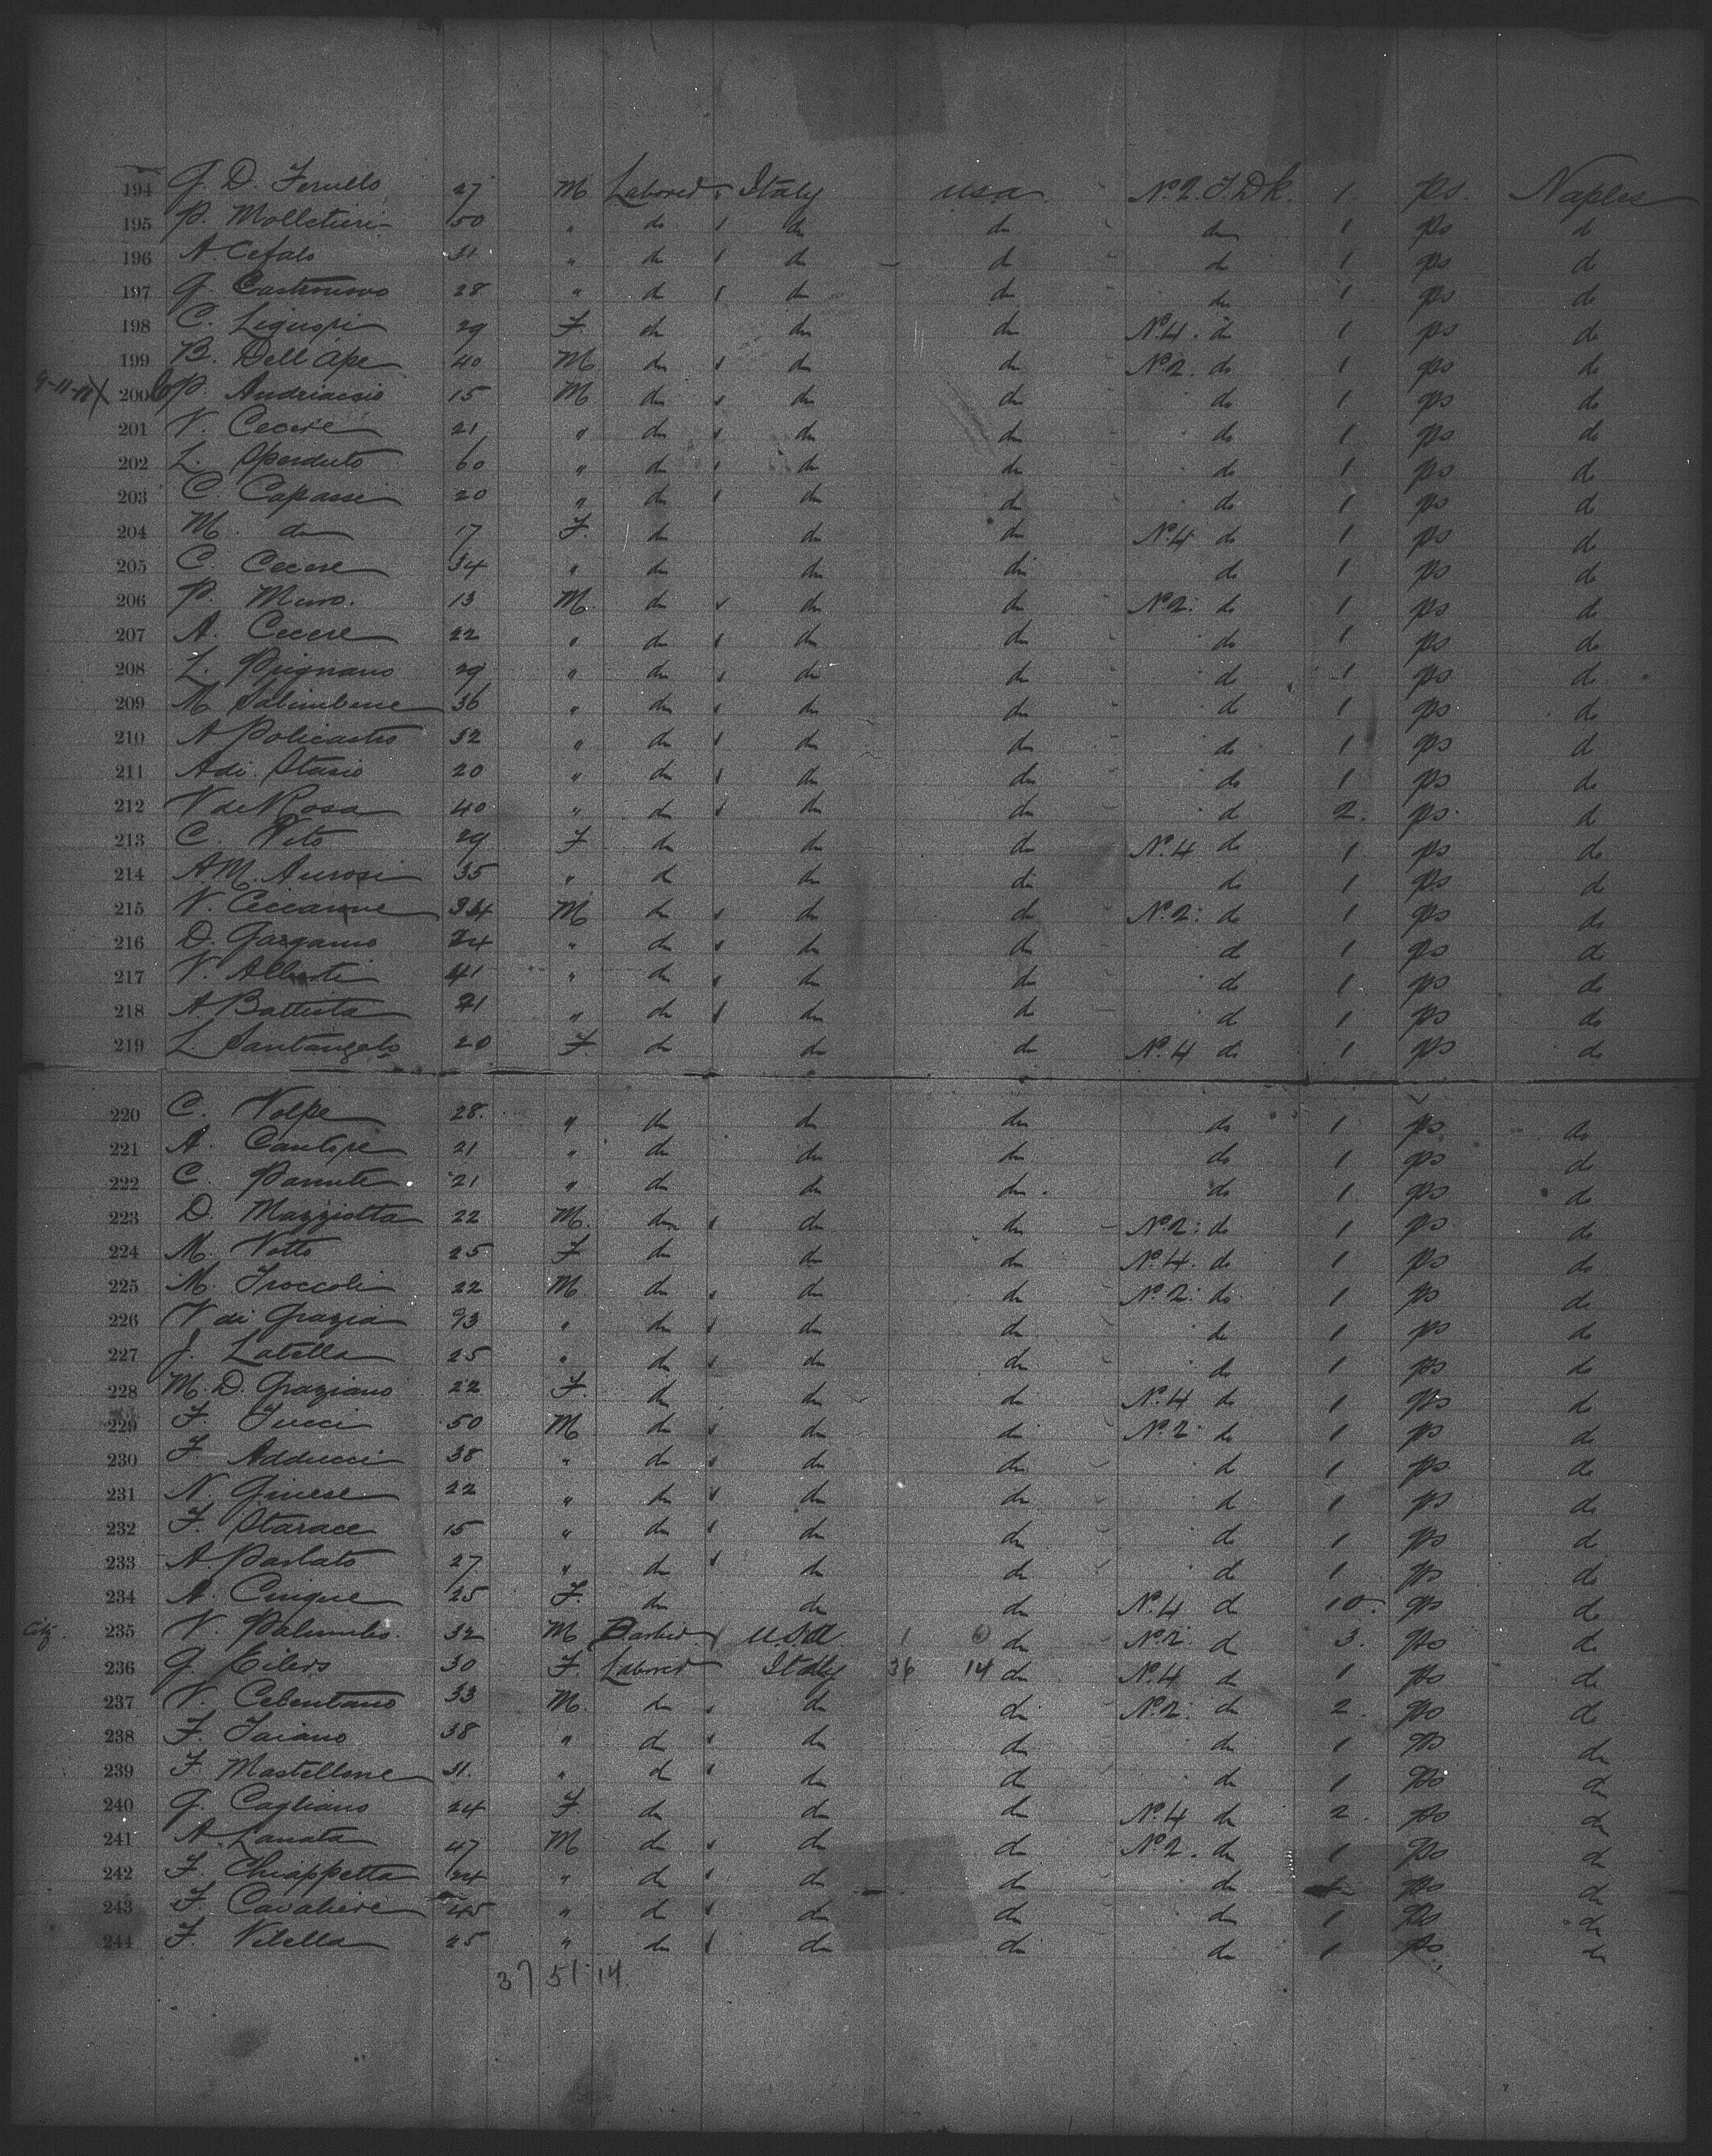 194 G. D. Ferullo 27 M Laborer Italy USA No. 2. T. Dk. 1 ps. Naples
195 P. Molletieri 50 " do do do do 1 ps do
196 A. Cefalo 31 " do do do do 1 ps do
197 G. Castronovo 28 " do do do do 1 ps do
198 C. Liguori 29 F do do do No. 4. do 1 ps do
199 B. Dell'Ape 40 M do do do No. 2. do 1 ps do
9-11-11 X 200 P. Andriaccio 15 M do do do do 1 ps do
201 V. Cecere 21 " do do do do 1 ps do
202 L. Sperduto 60 " do do do do 1 ps do
203 C. Capassi 20 " do do do do 1 ps do
204 M. do 17 F. do do do No. 4 do 1 ps do
205 C. Cecere 34 " do do do do 1 ps do
206 P. Muro. 13 M. do do do No. 2. do 1 ps do
207 A. Cecere 22 " do do do do 1 ps do
208 L. Prignano 29 " do do do do 1 ps do
209 M Salimbene 36 " do do do do 1 ps do
210 A Policastro 32 " do do do do 1 ps do
211 A di Stasio 20 " do do do do 1 ps do
212 V de Rosa 40 " do do do do 2. ps. do
213 C. Vito 29 F do do do No. 4 do 1 ps do
214 A. M. Aurosi 35 " do do do do 1 ps do
215 V. Ciccarone 34 M do do do No. 2: do 1 ps do
216 D. Gargano 24 " do do do do 1 ps do
217 V. Alberti 41 " do do do do 1 ps do
218 A Battista 21 " do do do do 1 ps do
219 L Santangelo 20 F. do do do No. 4 do 1 ps do
220 C. Volpe 28. " do do do do 1 ps do
221 A. Cantore 21 " do do do do 1 ps do
222 C. Parente 21 " do do do do 1 ps do
223 D. Mazziotta 22 M. do do do No. 2: do 1 ps do
224 M. Votto 25 F do do do No. 4. do 1 ps do
225 M. Troccoli 22 M do do do No. 2: do 1 ps do
226 V di Grazia 93 " do do do do 1 ps do
227 J. Latella 25 " do do do do 1 ps do
228 M. D. Graziano 22 F. do do do No. 4 do 1 ps do
229 F. Tucci 50 M do do do No. 2 do 1 ps do
230 F. Adducci 38 " do do do do 1 ps do
231 N. Ginese 22 " do do do do 1 ps do
232 F. Starace 15 " do do do do 1 ps do
233 A. Parlato 27 " do do do do 1 ps do
234 A. Cinque 25 F. do do do No. 4 do 10. ps do
Citz. 235 V. Palumbo. 32 M Barber U.S.A. 1 6 do No. 2. do 3. ps do
236 G. Eilers 30 F. Laborer Italy 36 14 do No. 4 do 1 ps do
237 V. Celentano 33 M. do do do No. 2. do 2. ps do
238 F. Taiano 38 " do do do do 1 ps do
239 F. Mastellone 31. " do do do do 1 ps do
240 G. Cagliano 24 F do do do No. 4 do 2 ps do
241 A. Lanata 47 M do do do No. 2. do 1 ps do
242 F. Chiappetta 24 " do do do do ps do
243 F. Cavaliere 45 " do do do do 1 ps do
244 F. Vilella 25 " do do do do 1 ps. do
37 51 14.